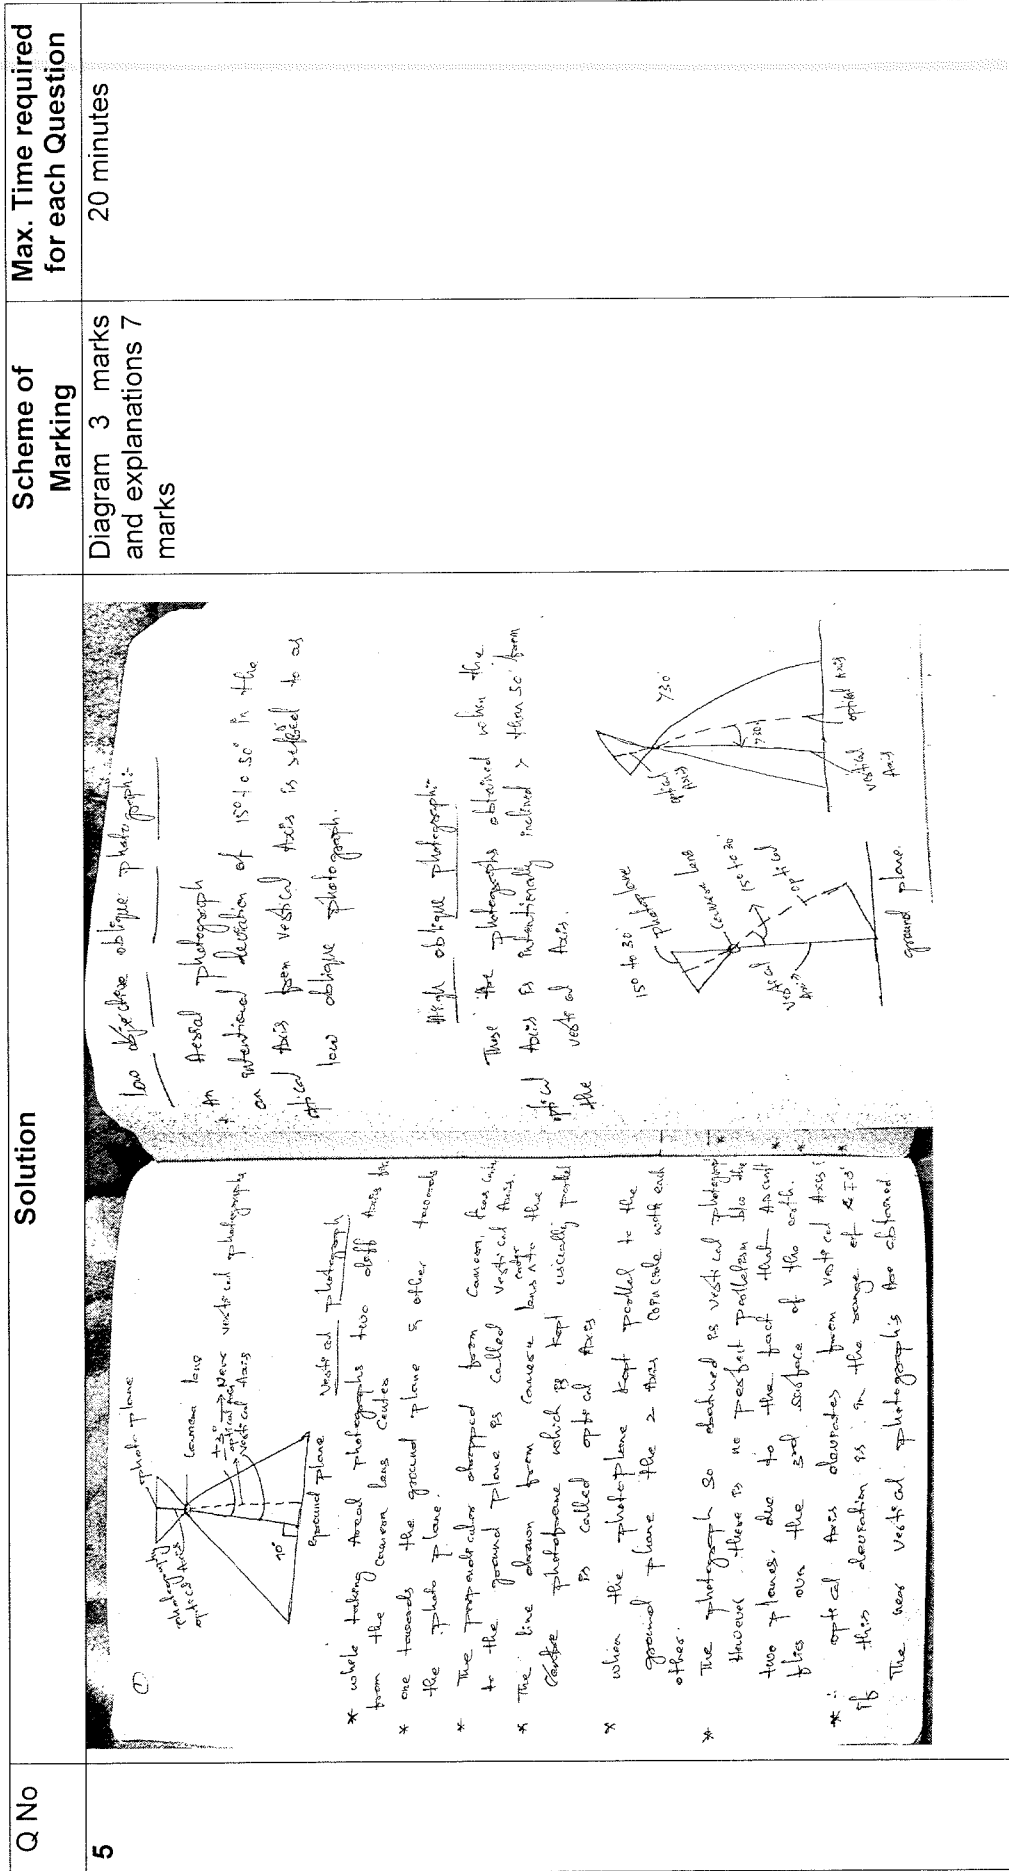 Q No
Solution
Scheme of
Marking
Max. Time required
for each Question
5
photo plane
Camera lens
photography
optical Axis
±3° → Near vertical photographs
optical Axis
vertical Axis
90°
ground plane
Vertical photograph
* while taking Areal photographs two diff Axis
from the camera lens Center
* one towards the ground plane & other towards
the photo plane.
* The prependicular dropped from Camera
to the ground plane is called vertical Axis.
* The line drawn from camera lens center to the
Centre photoframe which is kept usically
is called optical Axis
* when the photoplane kept parllel to the
ground plane the 2 Axis coincide with each
other.
* The photograph so obatined is vertical photograph
However there is no perfect parllelism b/w the
two planes. due to the fact that
flies over the surface of the earth.
* : optical Axis deveates from vertical Axis
If this deveation is in the range of
The near vertical photographs Are obtained
low oblique photograph:-
* An Aerial photograph
an intentional deveation of 15° to 30° in the
optical Axis from vertical Axis is reffered to as
low oblique photograph.
High oblique photograph:-
These Are photographs obtained when the
optical Axis is intentionally inclined > then 30° form
the vertical Axis.
15° to 30°
photoplane
Camera lens
15° to 30°
optical
vertical
Axis
ground plane.
>30°
optical
Axis
>30°
optical Axis
vertical
Axis
Diagram 3 marks
and explanations 7
marks
20 minutes